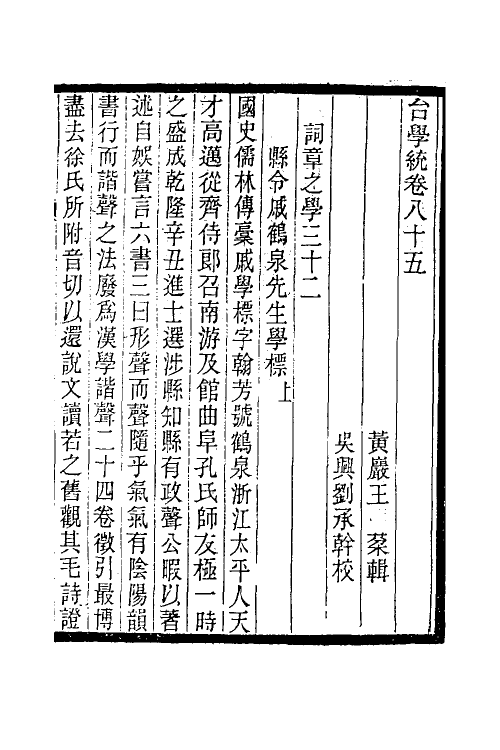 台學統卷八十五
黃巖王　棻輯
吳興劉承幹校
詞章之學三十二
縣令戚鶴泉先生學標上
國史儒林傳稾戚學標字翰芳號鶴泉浙江太平人天
才高邁從齊侍郎召南游及館曲阜孔氏師友極一時
之盛成乾隆辛丑進士選涉縣知縣有政聲公暇以著
述自娛嘗言六書三曰形聲而聲隨乎氣氣有陰陽韻
書行而諧聲之法廢爲漢學諧聲二十四卷徵引最博
盡去徐氏所附音切以還說文讀若之舊觀其毛詩證